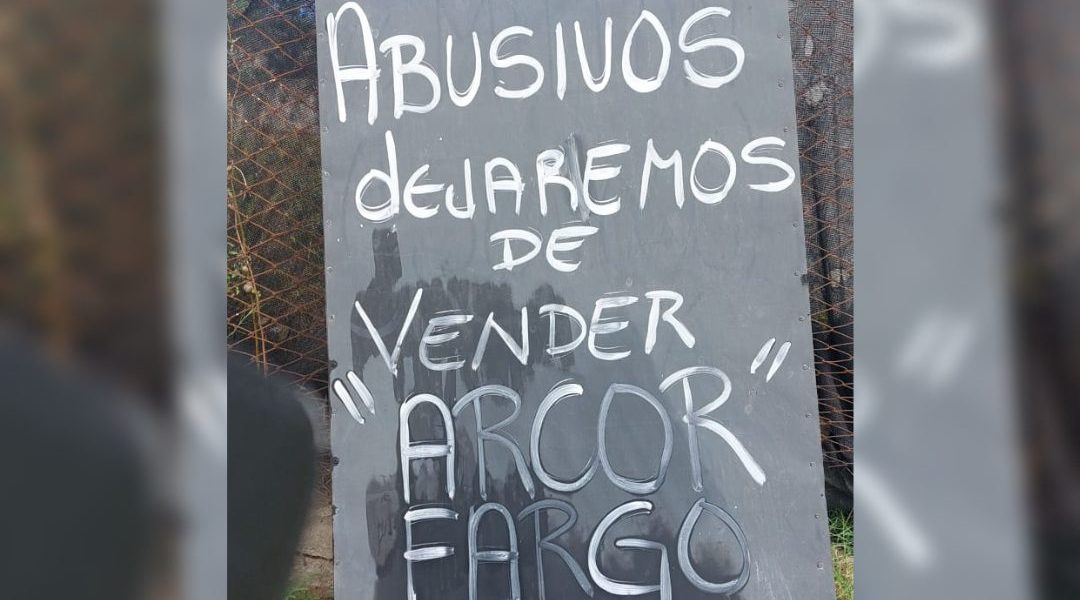 ABUSIVOS
dEJAREMOS
DE
VENDER
"ARCOR"
FARGO